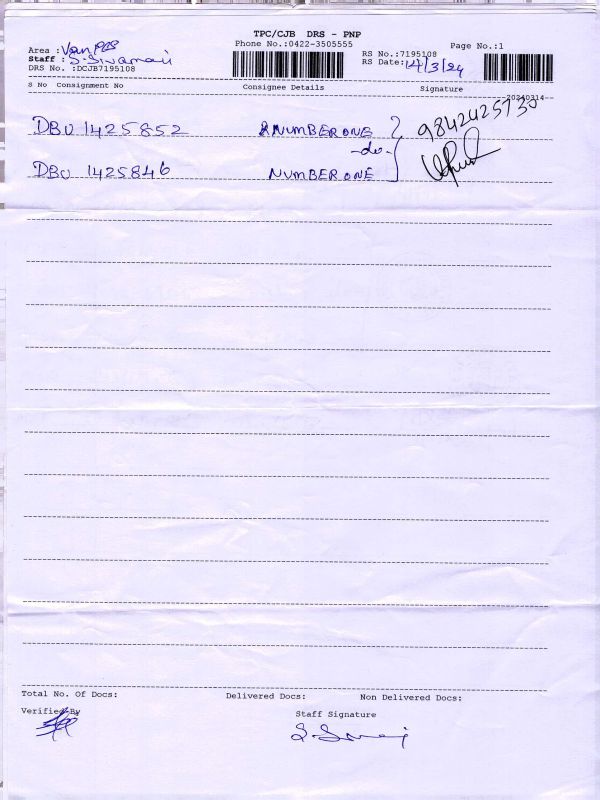 TPC/CJB DRS - PNP
Phone No.:0422-3505555
Page No.:1
Area : Van
Staff : S. Sivamani
DRS No. :DCJB7195108
RS No.:7195108
RS Date: 14/3/24
S No Consignment No Consignee Details Signature
20240314
DBU 1425852 NUMBER ONE 9842425730
-do-
DBU 1425846 NUMBER ONE
Total No. Of Docs: Delivered Docs: Non Delivered Docs:
Verified By Staff Signature